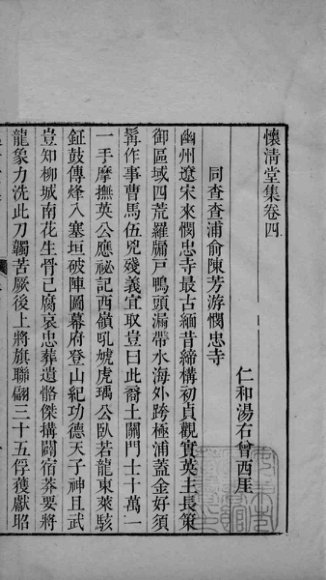 懷清堂集卷四
仁和湯右曾西厓
同查查浦俞陳芳游憫忠寺
幽州遼宋來憫忠寺最古緬昔締構初貞觀實英主長策
御區域四荒羅牖戶鴨頭漏帶水海外跨極浦蓋金好須
髯作事曹馬伍兇殘義宜取豈曰此裔土關門士十萬一
一手摩撫英公應祕記西嶺吼虓虎瑀公臥若龍東萊駭
鉦鼓傳烽入塞垣破陣圖幕府登山紀功德天子神且武
豈知柳城南花生骨已腐哀忠葬遺骼傑搆闢宿莽要將
龍象力洗此刀鐲苦厥後上將旗聯翩三十五俘獲獻昭